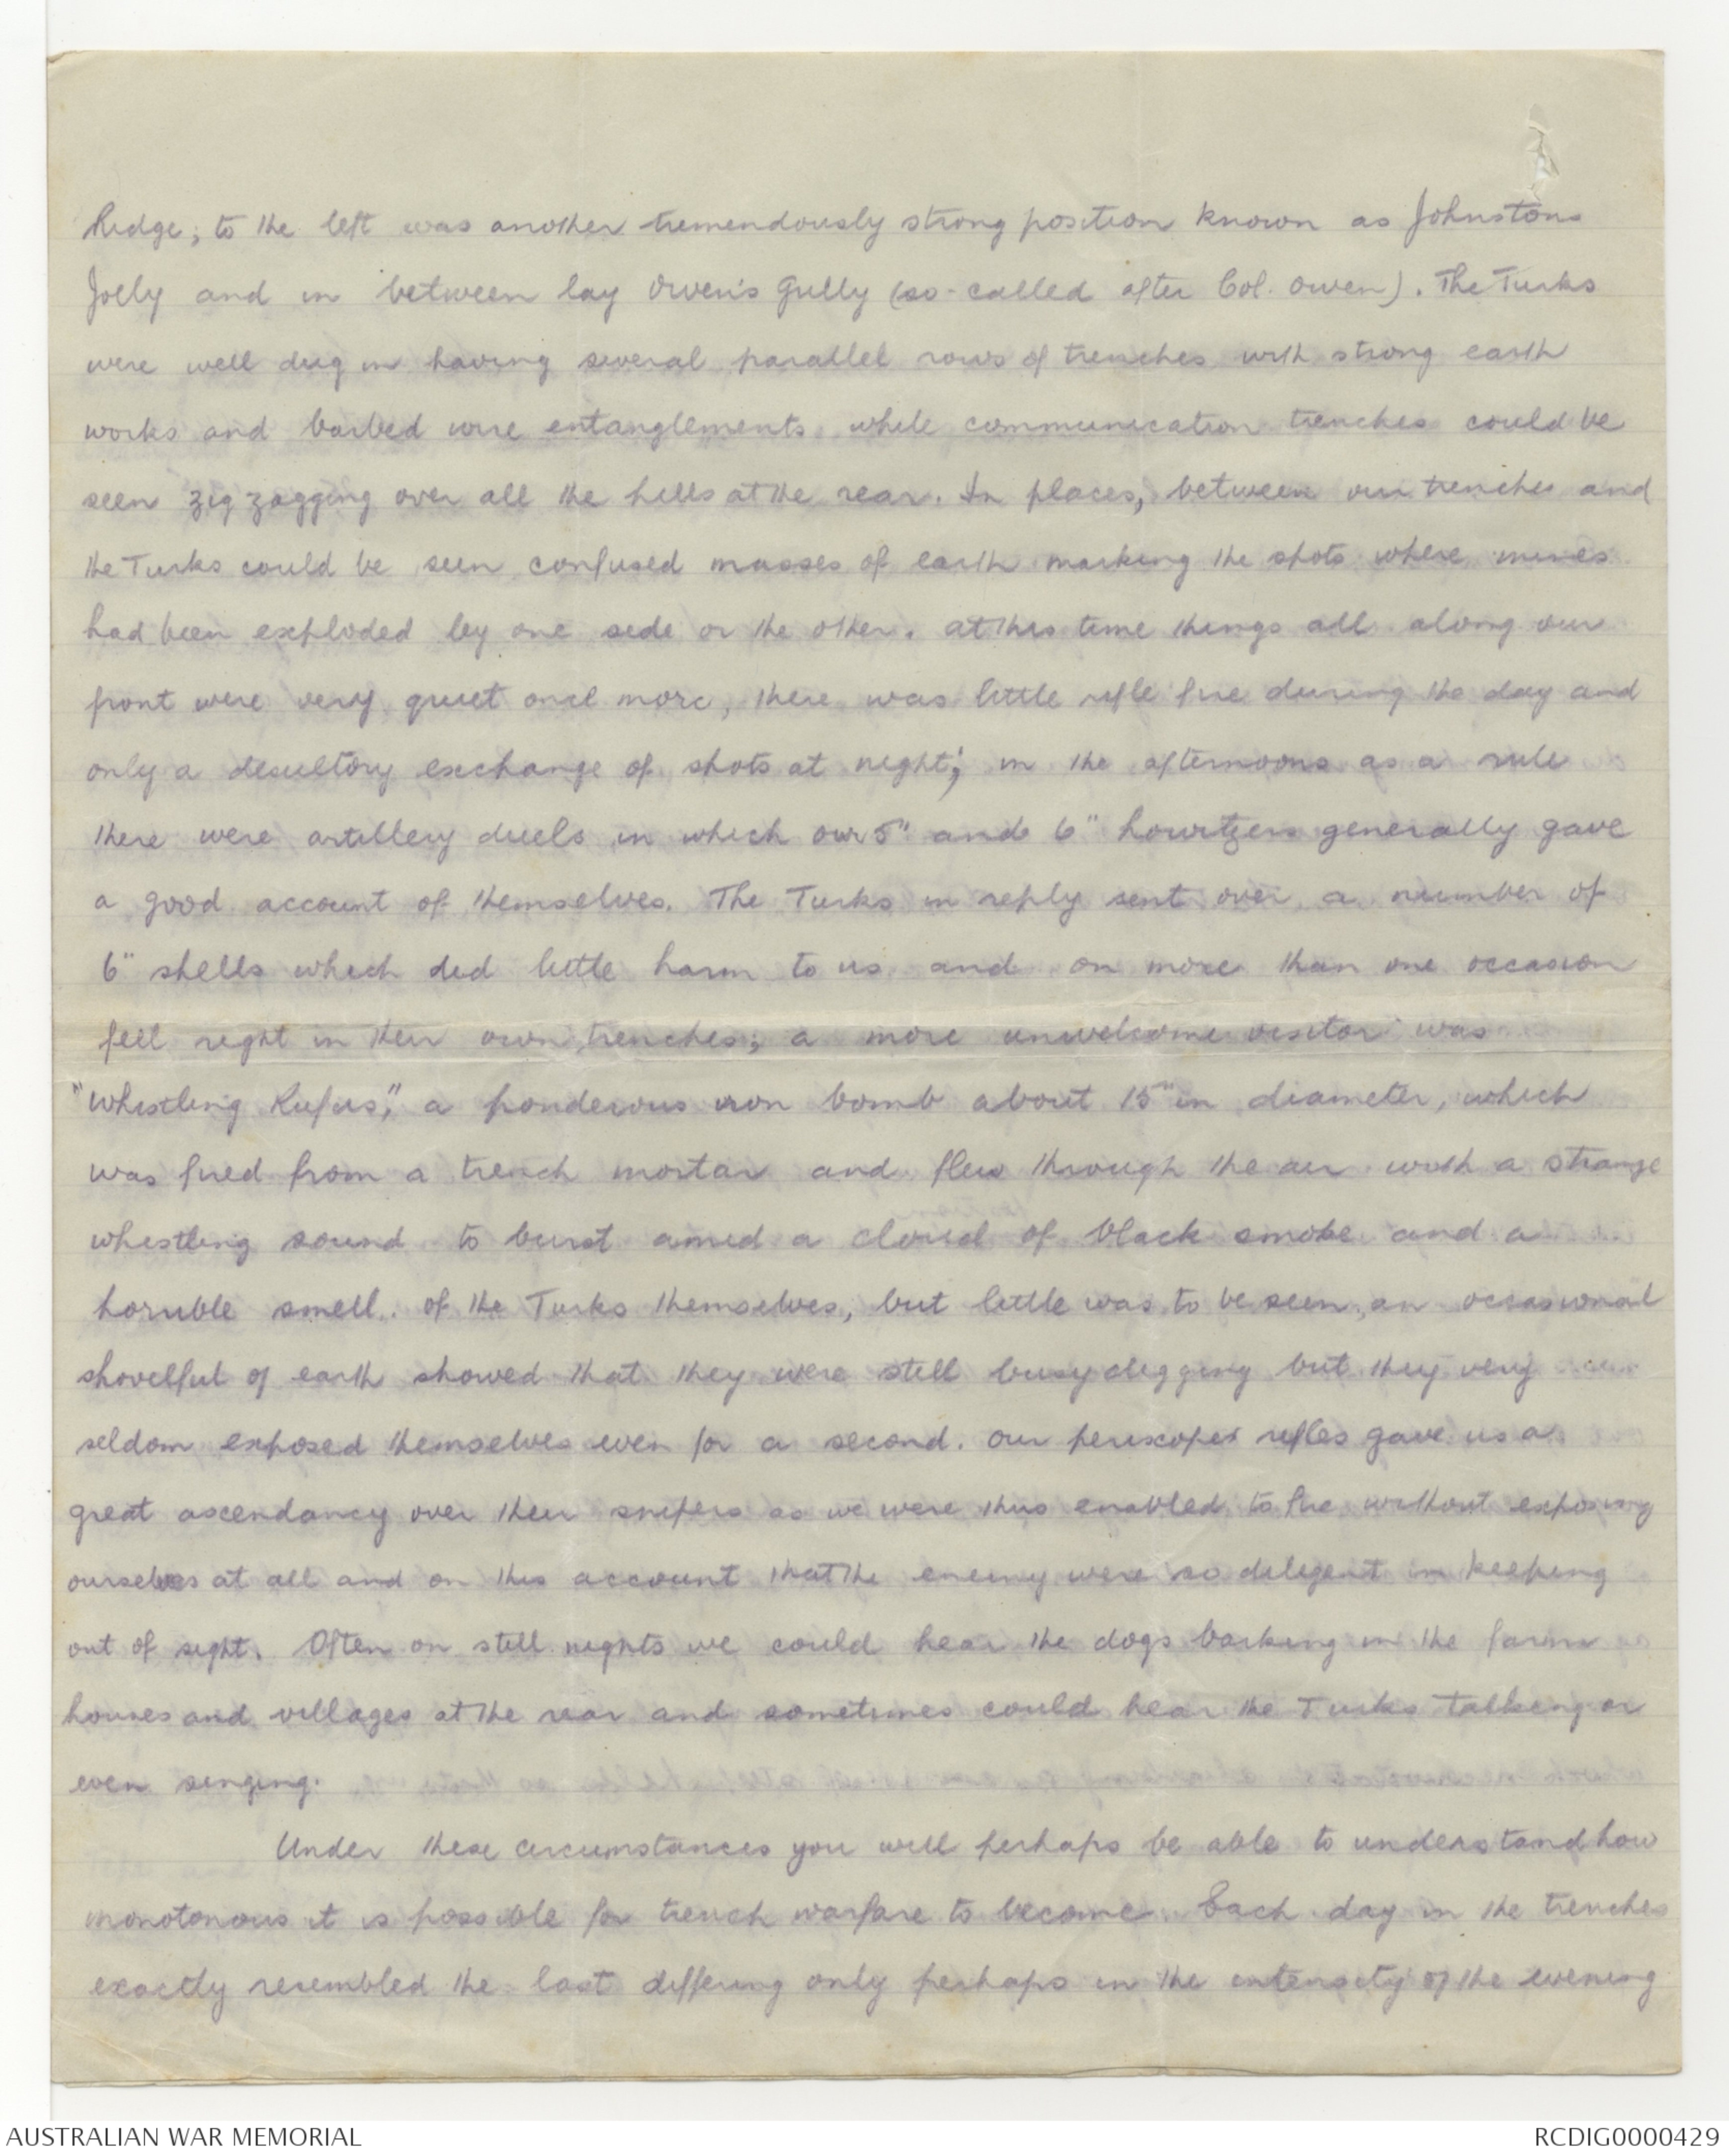 Ridge; to the left was another tremendously strong position known as Johnstons
Jolly and in between lay Owen's Gully (so-called after Col. Owen). The Turks
were well dug in having several parallel rows of trenches with strong earth
works and barbed wire entanglements while communication trenches could be
seen zig zagging over all the hills at the rear. In places, between our trenches and
the Turks could be seen confused masses of earth marking the spots where mines
had been exploded by one side or the other. At this time things all along our
front were very quiet once more, there was little rifle fire during the day and
only a desultory exchange of shots at night; in the afternoons as a rule
there were artillery duels in which our 5" and 6" howitzers generally gave
a good account of themselves. The Turks in reply sent over a number of
6" shells which did little harm to us and on more than one occasion
fell right in their own trenches; a more unwelcome visitor was
"Whistling Rufus," a ponderous iron bomb about 15" in diameter, which
was fired from a trench mortar and flew through the air with a strange
whistling sound to burst amid a cloud of black smoke and a
horrible smell. Of the Turks themselves, but little was to be seen, an occasional
shovelful of earth showed that they were still busy digging but they very
seldom exposed themselves even for a second. Our periscopes rifles gave us a
great ascendancy over their snipers as we were thus enabled to fire without exposing
ourselves at all and on this account that the enemy were so diligent in keeping
out of sight. Often on still nights we could hear the dogs barking in the farm
houses and villages at the rear and sometimes could hear the Turks talking or
even singing.
Under these circumstances you will perhaps be able to understand how
monotonous it is possible for trench warfare to become. Each day in the trenches
exactly resembled the last differing only perhaps in the intensity of the evening
AUSTRALIAN WAR MEMORIAL
RCDIG0000429